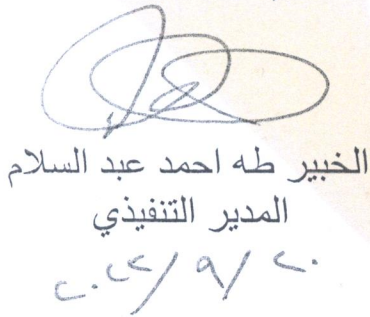 الخبير طه احمد عبد السلام
المدير التنفيذي
٢٠٢٣/٩/٢٠